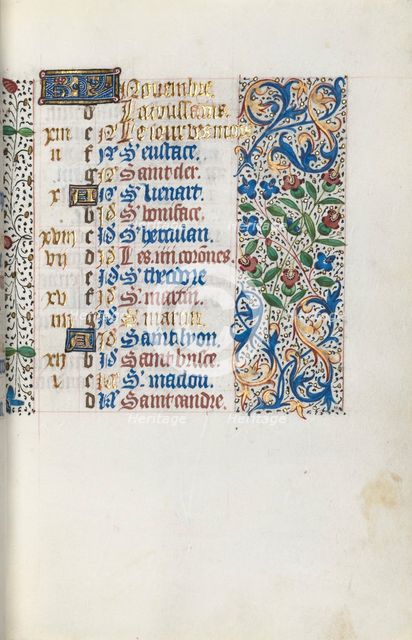 Nouembre.
d La toussains.
xiii e Le iour des mors
ii f S' eustace.
g Saint cler.
x A S' lienart.
b S' boniface.
xviii c S' herculan.
vii d Les iiii corones.
e S' theodre
xv f S. martin.
iiii g S. martin
A Saint lyon.
xii b Saint brisce.
c S' maclou.
d Saint andre.
Heritage
Heritage